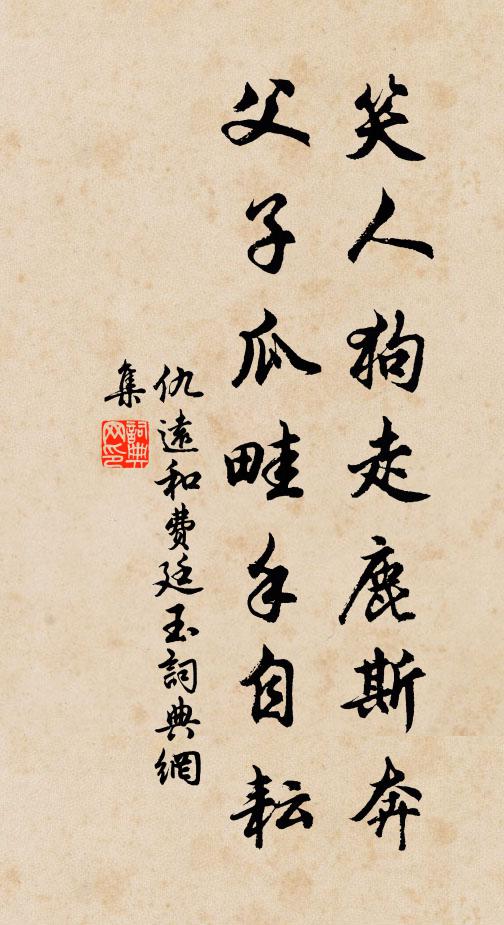 笑人狗走鹿斯奔
父子瓜畦手自耘
仇遠和費廷玉詞典網
集
詞典网印